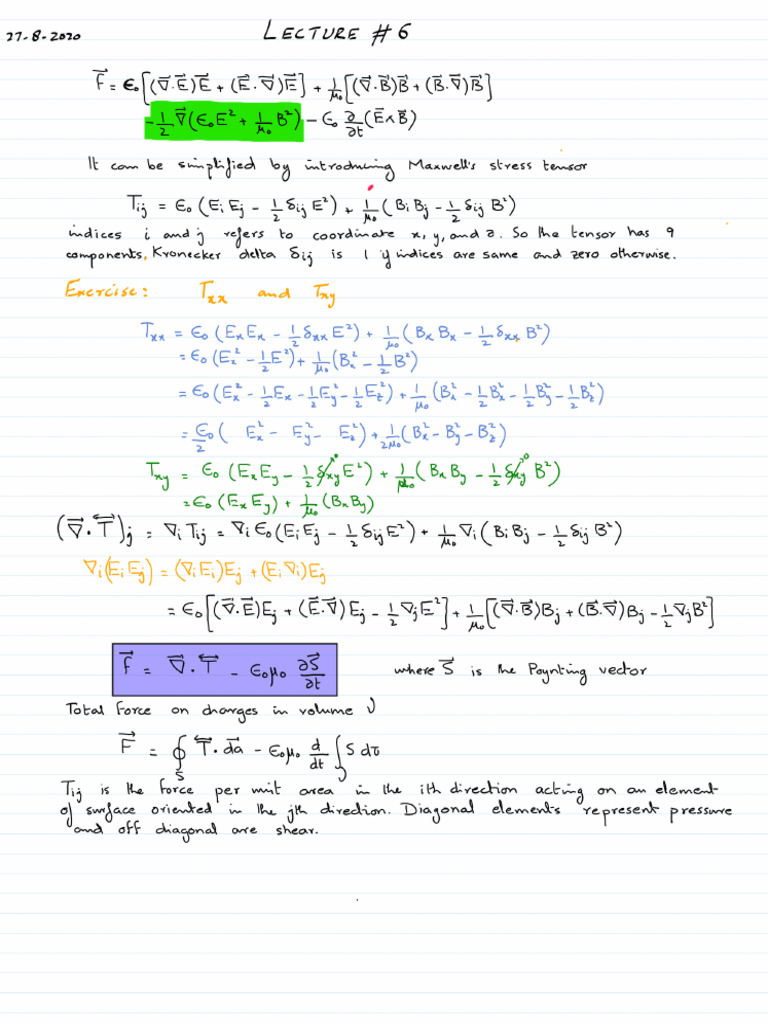 27-8-2020
LECTURE # 6
F⃗ = ε₀[(∇⃗.E⃗)E⃗ + (E⃗.∇⃗)E⃗] + 1/μ₀[(∇⃗.B⃗)B⃗ + (B⃗.∇⃗)B⃗]
-1/2 ∇⃗(ε₀E² + 1/μ₀ B²) - ε₀ ∂/∂t (E⃗×B⃗)
It can be simplified by introducing Maxwell's stress tensor
Tij = ε₀(EiEj - 1/2 δij E²) + 1/μ₀(BiBj - 1/2 δij B²)
indices i and j refers to coordinate x, y, and z. So the tensor has 9
components, Kronecker delta δij is 1 if indices are same and zero otherwise.
Exercise: Txx and Txy
Txx = ε₀(ExEx - 1/2 δxx E²) + 1/μ₀(BxBx - 1/2 δxx B²)
= ε₀(Ex² - 1/2 E²) + 1/μ₀(Bx² - 1/2 B²)
= ε₀(Ex² - 1/2 Ex - 1/2 Ey² - 1/2 Ez²) + 1/μ₀(Bx² - 1/2 Bx² - 1/2 By² - 1/2 Bz²)
= ε₀/2 (Ex² - Ey² - Ez²) + 1/2μ₀(Bx² - By² - Bz²)
Txy = ε₀(ExEy - 1/2 δxy⁰ E²) + 1/μ₀(BxBy - 1/2 δxy⁰ B²)
= ε₀(ExEy) + 1/μ₀(BxBy)
(∇⃗.T⃡)j = ∇iTij = ∇iε₀(EiEj - 1/2 δij E²) + 1/μ₀ ∇i(BiBj - 1/2 δij B²)
∇i(EiEj) = (∇iEi)Ej + (Ei∇i)Ej
= ε₀[(∇⃗.E⃗)Ej + (E⃗.∇⃗)Ej - 1/2 ∇jE²] + 1/μ₀[(∇⃗.B⃗)Bj + (B⃗.∇⃗)Bj - 1/2 ∇jB²]
F⃗ = ∇⃗.T⃡ - ε₀μ₀ ∂S⃗/∂t where S⃗ is the Poynting vector
Total Force on charges in volume V
F⃗ = ∮S T⃡.da⃗ - ε₀μ₀ d/dt ∫V S dτ
Tij is the force per unit area in the ith direction acting on an element
of surface oriented in the jth direction. Diagonal elements represent pressure
and off diagonal are shear.